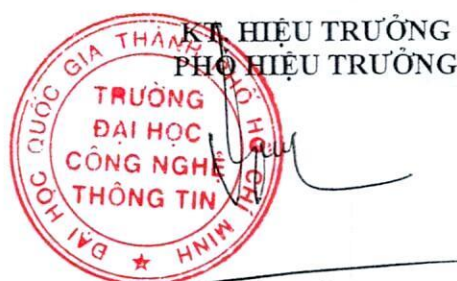 KT. HIỆU TRƯỞNG
PHÓ HIỆU TRƯỞNG
ĐẠI HỌC QUỐC GIA THÀNH PHỐ HỒ CHÍ MINH
TRƯỜNG
ĐẠI HỌC
CÔNG NGHỆ
THÔNG TIN